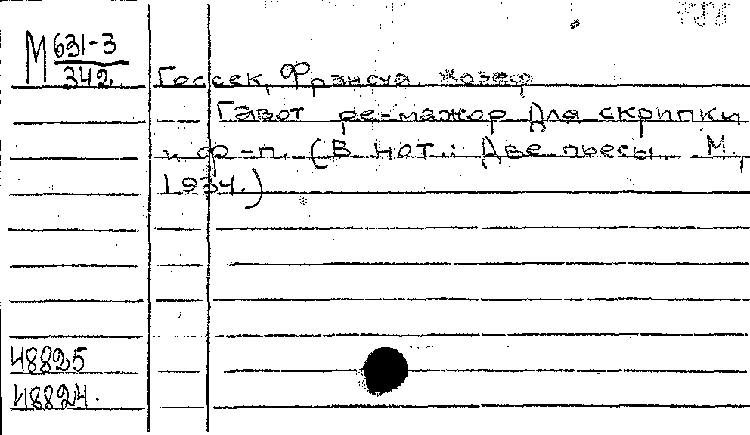 М 631-3
342
Госсек, Франсуа Жозеф
Гавот ре-мажор для скрипки
и ф-п. (В нот.: Две пьесы. М.,
1934.)
48825
48824.